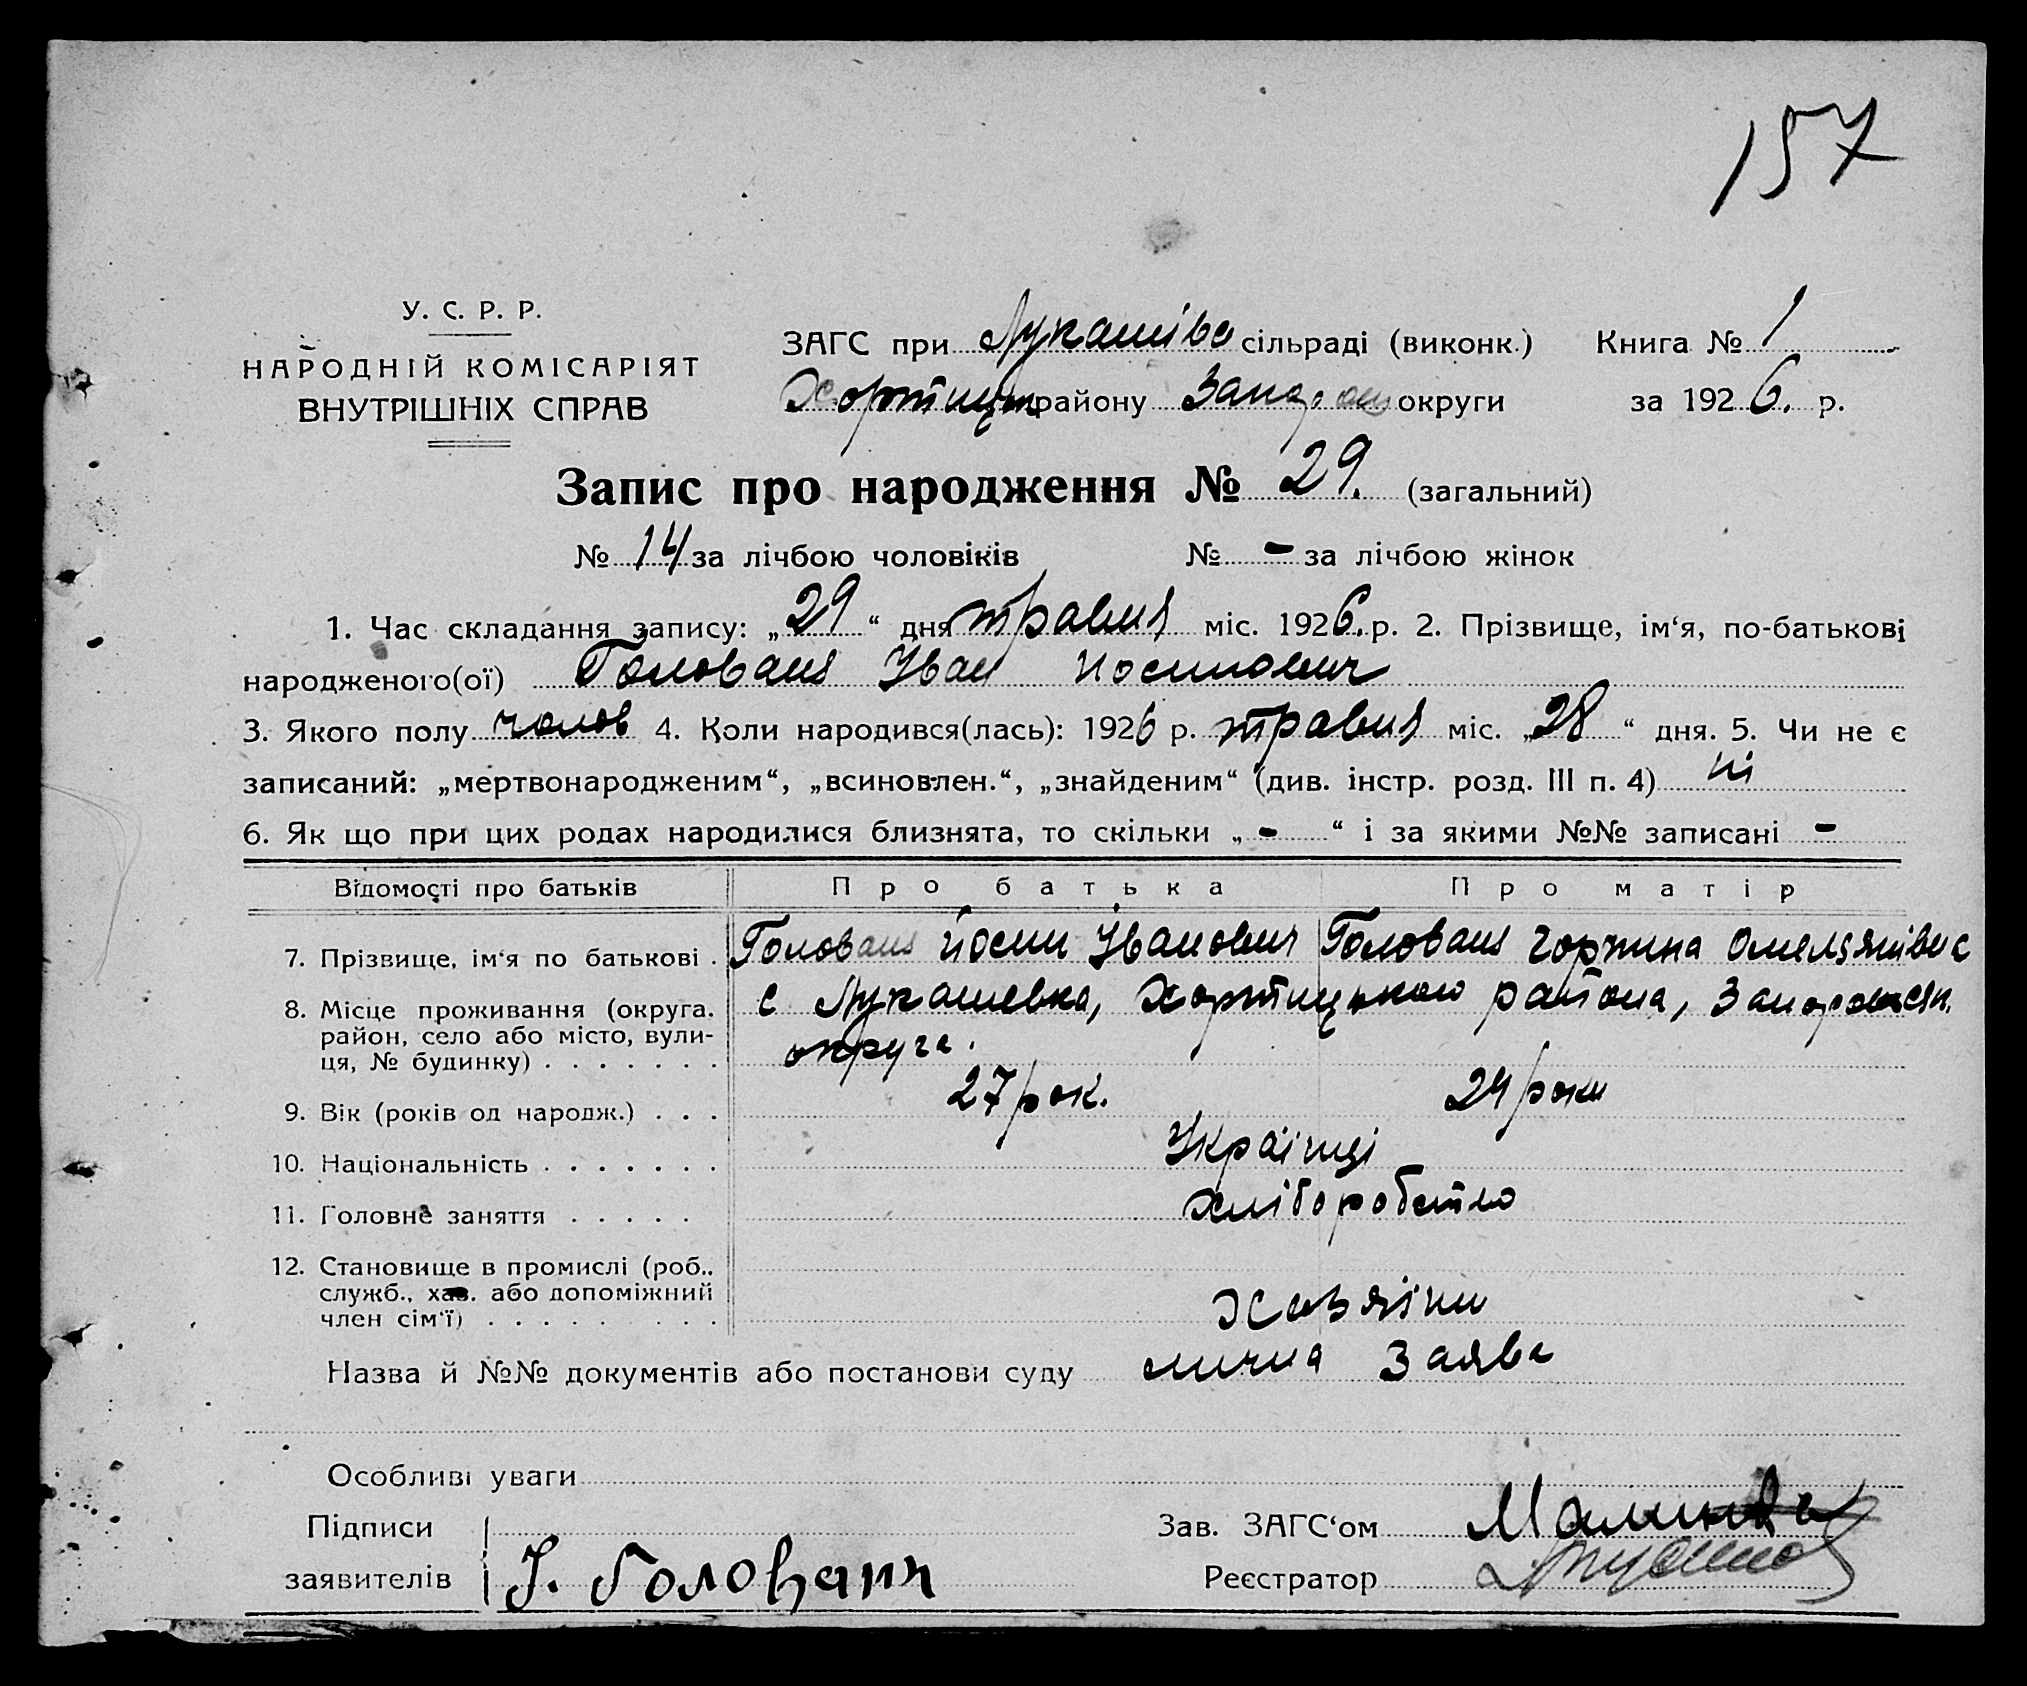 157
У. С. Р. Р.
НАРОДНІЙ КОМІСАРІЯТ
ВНУТРІШНІХ СПРАВ
ЗАГС при Лукашівс сільраді (виконк.) Книга № 1
Хортицьк району Запор округи за 1926. р.
Запис про народження № 29. (загальний)
№ 14 за лічбою чоловіків № - за лічбою жінок
1. Час складання запису: „29“ дня травня міс. 1926. р. 2. Прізвище, ім‘я, по-батькові
народженого(ої) Головань Іван Йосипович
3. Якого полу чолов 4. Коли народився(лась): 1926 р. травня міс. „28“ дня. 5. Чи не є
записаний: „мертвонародженим“, „всиновлен.“, „знайденим“ (див. інстр. розд. III п. 4) ні
6. Як що при цих родах народилися близнята, то скільки „-“ і за якими №№ записані -
Відомості про батьків Про батька Про матір
7. Прізвище, ім‘я по батькові . Головань Йосип Іванович Головань Горпина
8. Місце проживання (округа. с Лукашевка, Хортицького района,
район, село або місто, вули-
ця, № будинку) . . . . . . . округа.
9. Вік (років од народж.) . . . 27 рок. 24 роки
10. Національність . . . . . . . Українці
11. Головне заняття . . . . . Хліборобство
12. Становище в промислі (роб..
служб., хаз. або допоміжний
член сім‘ї) . . . . . . . . . Хазяїни
Назва й №№ документів або постанови суду лична Заява
Особливі уваги
Підписи Зав. ЗАГС‘ом
заявителів Й. Головань Реєстратор